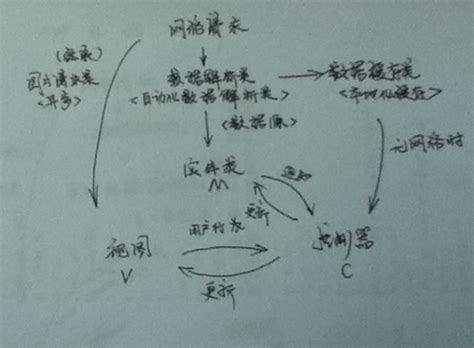 网络请求
(继承)
图片请求类
<异步>
数据解析类
<自动化数据解析类>
数据缓存类
<本地化缓存>
<数据源>
无网络时
实体类
M
通知
更新
用户行为
视图
V
更新
控制器
C